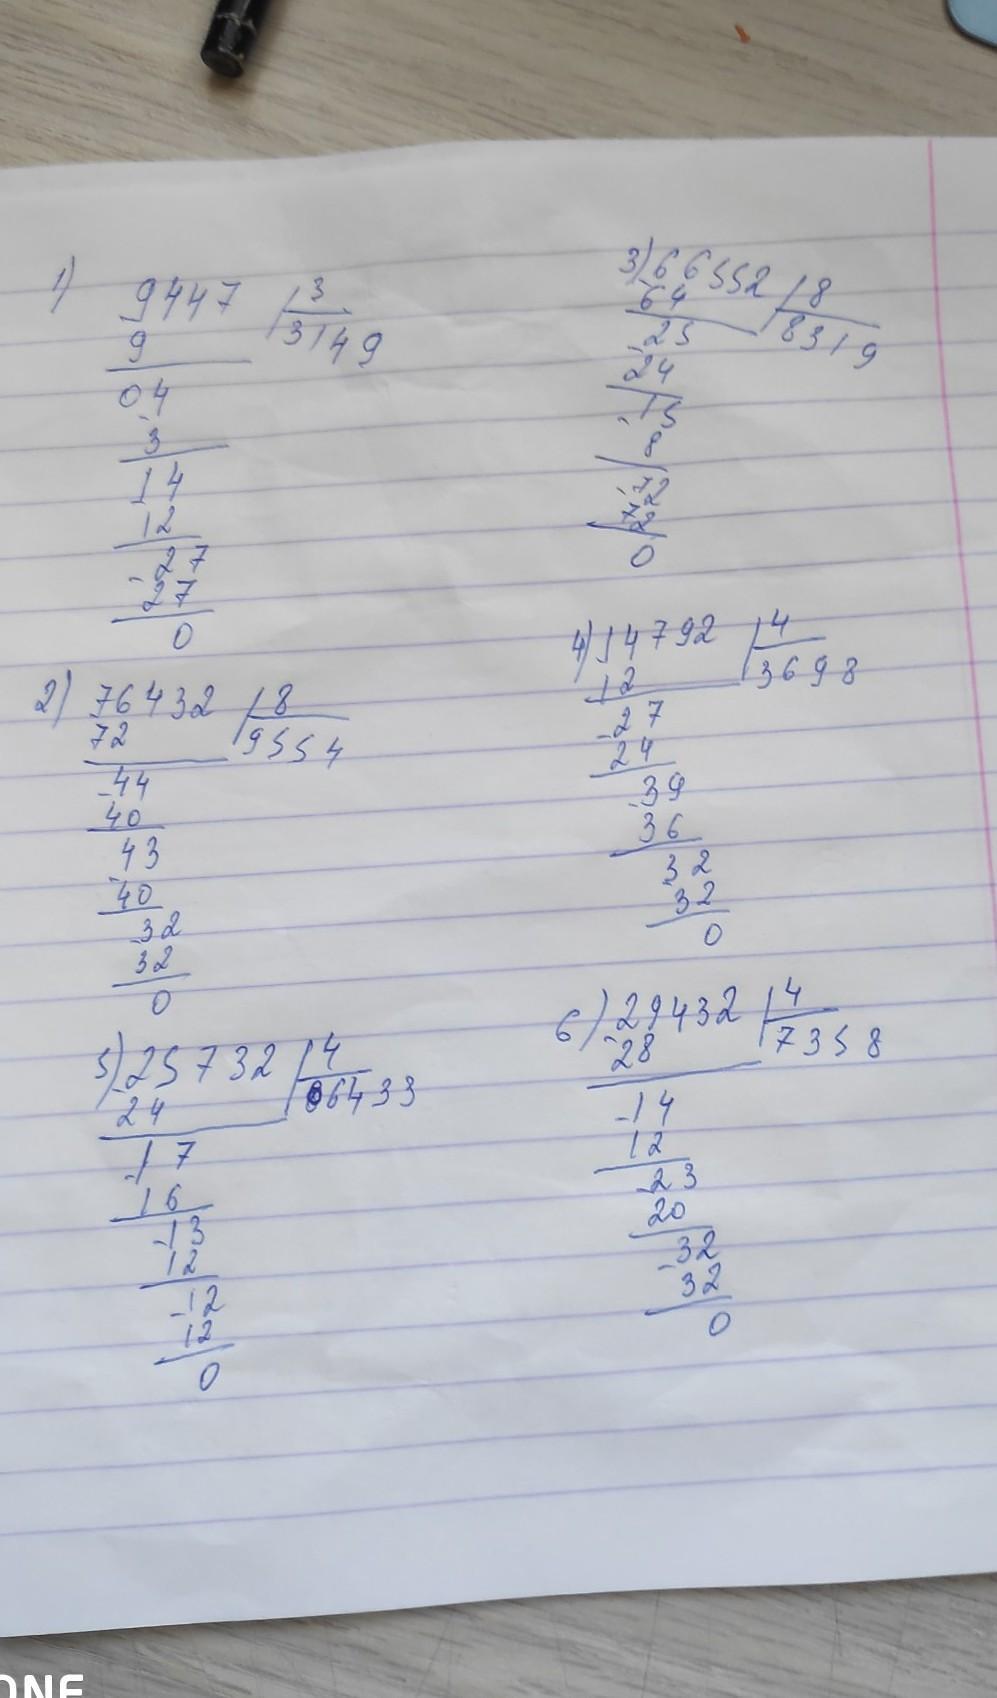 1)
9447 3
9 3149
04
-3
14
12
-27
27
0
2) 76432 8
72 9554
-44
40
43
-40
32
32
0
5) 25732 4
24 6433
-17
16
-13
12
-12
12
0
3) 66552 8
64 8319
-25
24
-15
8
-72
72
0
4) 14792 4
12 3698
-27
24
-39
36
32
32
0
6) 29432 4
-28 7358
-14
12
-23
20
-32
32
0
ONE